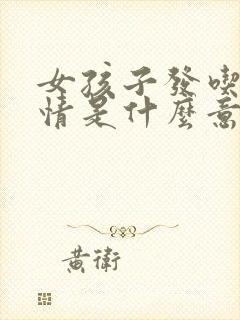 女孩子發喫
情是什麼意
黃衛